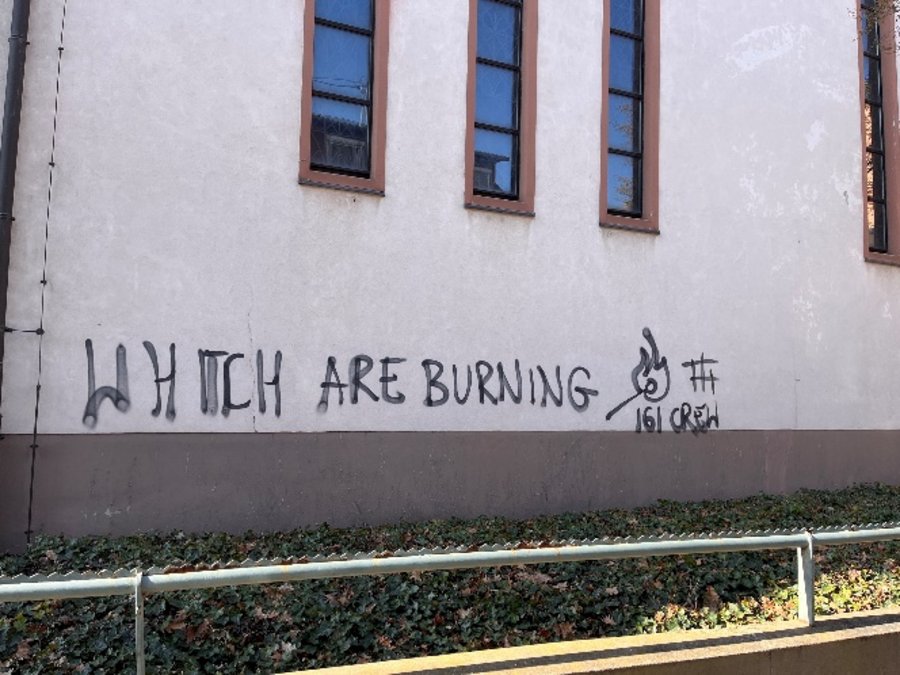 WHITCH ARE BURNING #
161 CREW